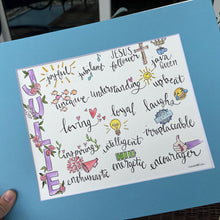 JULIE
joyful
jubilant
JESUS follower
java Queen
unique
understanding
upbeat
loving
loyal
laughs
intelligent
irreplaceable
energetic
encourager
enthusiastic